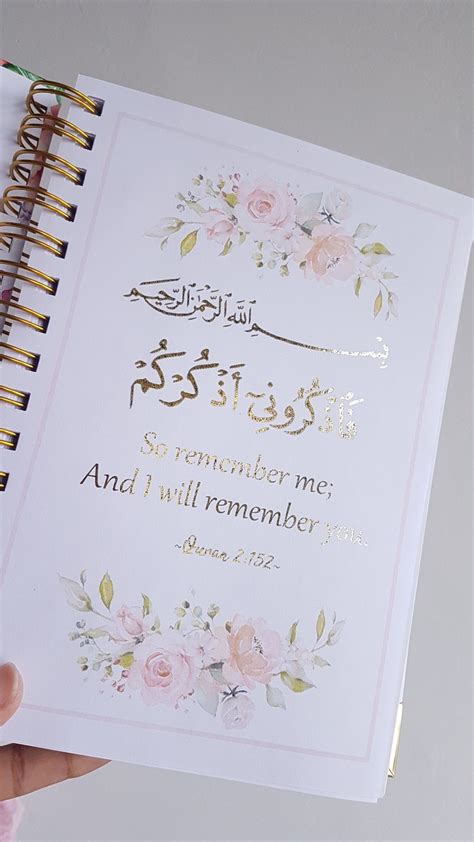 بِسْمِ اللَّهِ الرَّحْمَٰنِ الرَّحِيمِ
فَٱذْكُرُونِىٓ أَذْكُرْكُمْ
So remember me;
And I will remember you.
~Quran 2:152~